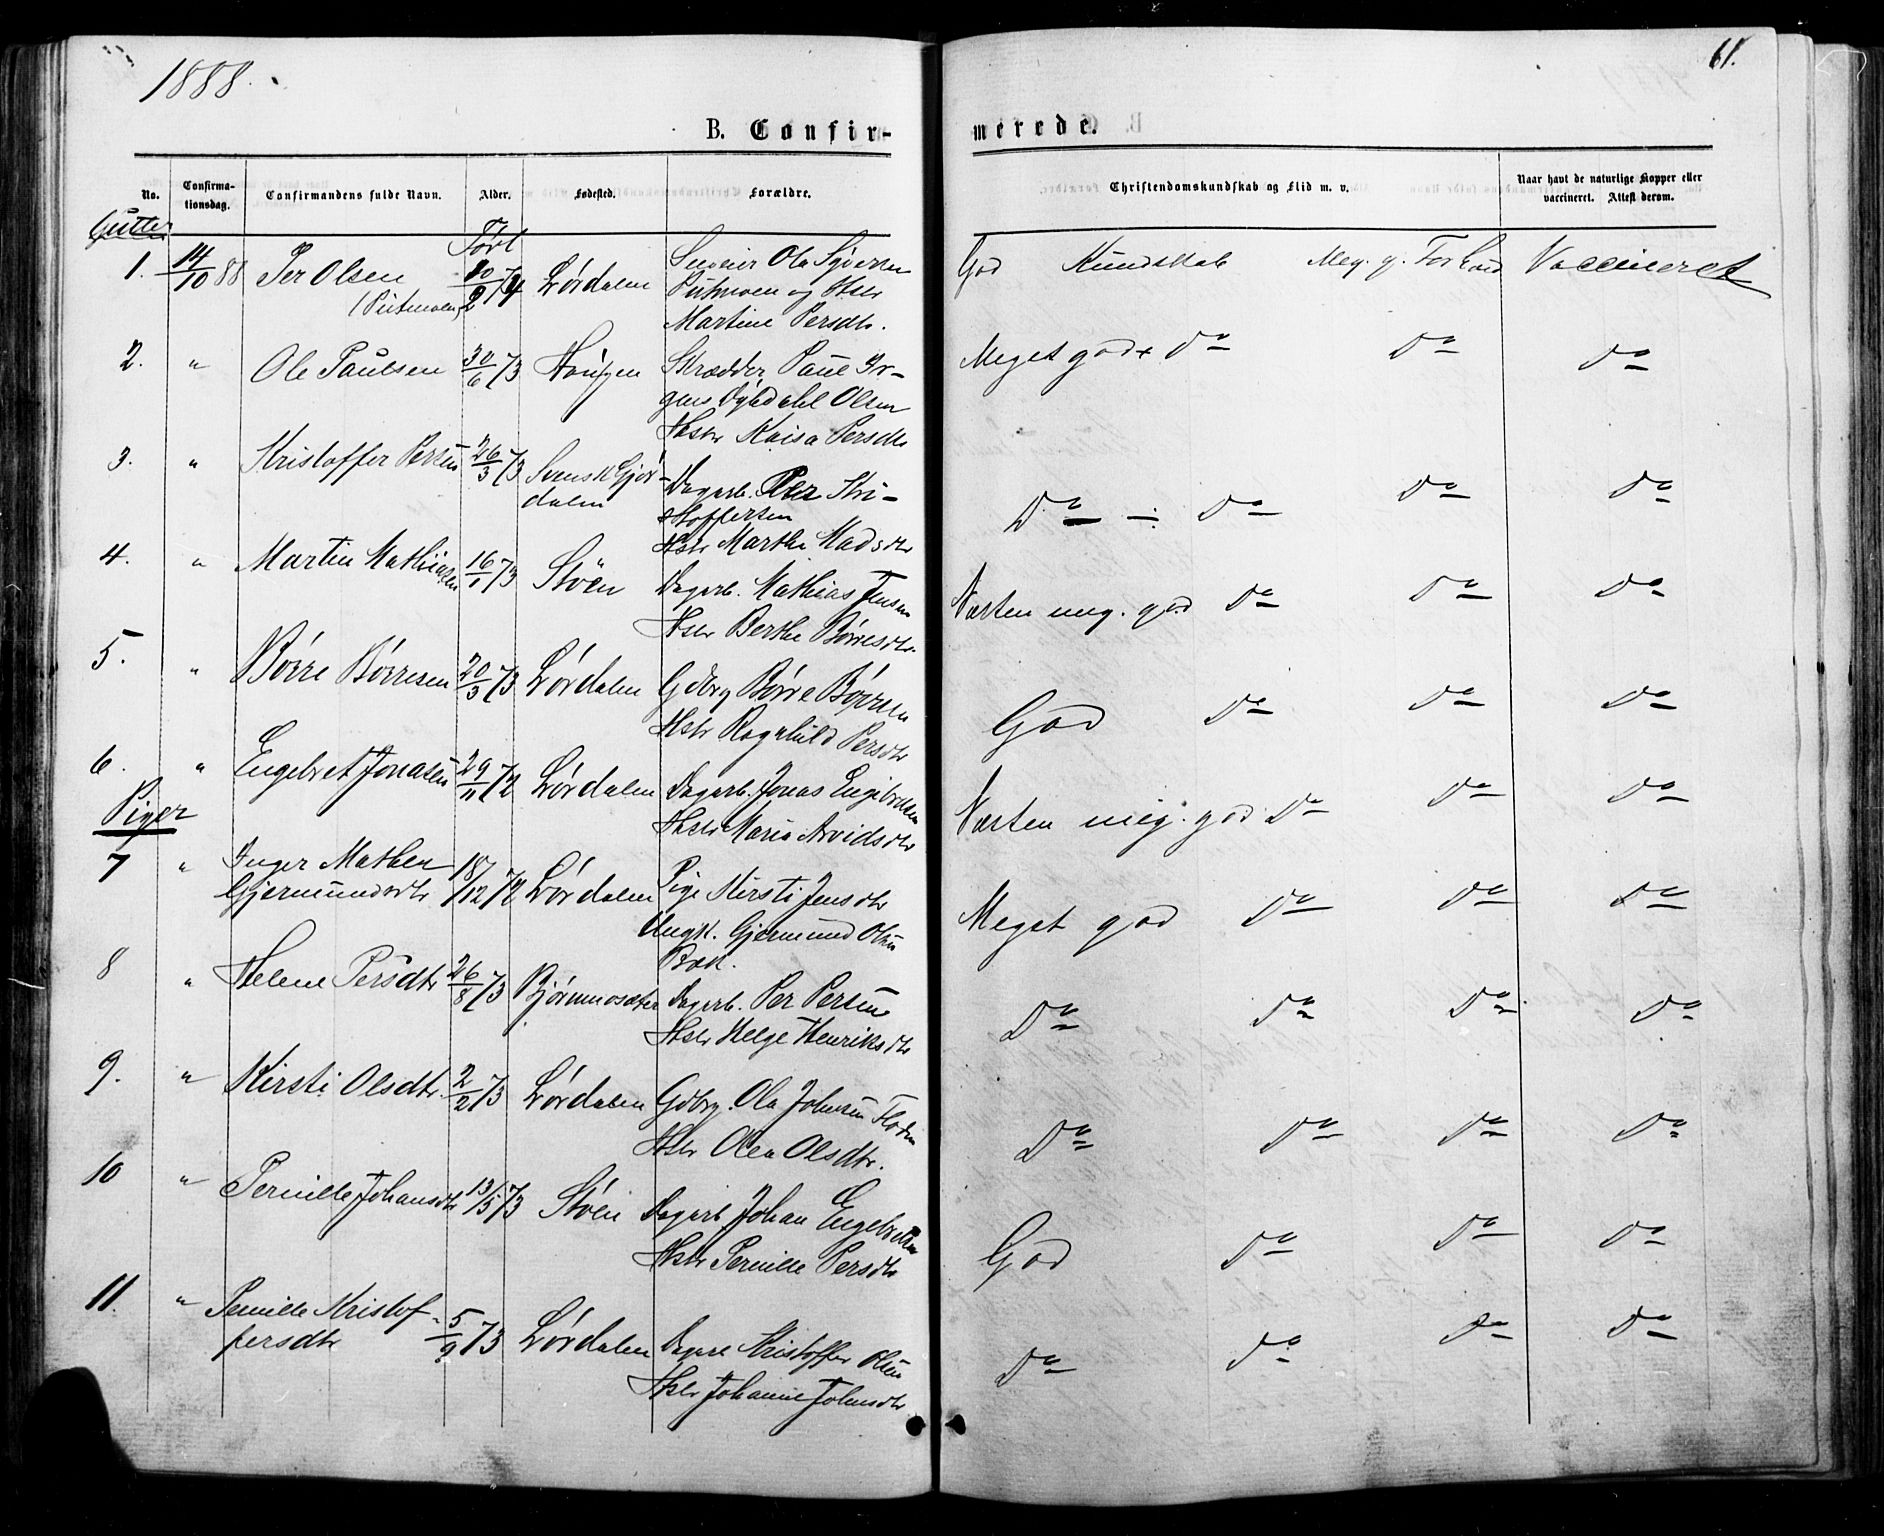 1888.
61.
B. Confir-
merede.
No.
Confirma-
tionsdag.
Confirmandens fulde Navn.
Alder.
Fødested.
Forældre.
Christendomskundskab og Flid m. v.
Naar havt de naturlige Kopper eller
vaccineret. Attest derom.
Gutter
Født
1. 14/10 88 Per Olsen 20/2 74 Lørdalen Ola
(Putmoen) Putmoen og Hstr
Martine Persdtr.
God Kundskab Meg. g. Forhold Vaccineret
2. " Ole Paulsen 30/6 73 Haugen Skrædder Paul Jør-
gens Olsen
Hstr Kaisa Persdtr
Meget god Do Do Do
3. " Kristoffer Persen 26/3 73 Svensk Gjør- Dagarb. Per Kri-
dalen stoffersen
Hstr Marthe Madsdtr
Do - Do Do Do
4. " Martin Mathiasen 16/1 73 Støen Dagarb. Mathias Jensen
Hstr Berthe Børresdtr
Næsten meg. god Do Do Do
5. " Børre Børresen 20/3 73 Lørdalen Gdbrg Børre Børresen
Hstr Ragnhild Persdtr
God Do Do Do
6. " Engebret Jonasen 29/11 72 Lørdalen Dagarb. Jonas Engebretsen
Hstr Maria Arvidsdtr
Næsten meg. god Do Do Do
Piger
7 " Inger Mathea 18/12 72 Lørdalen Pige Kirsti Jensdtr
Gjermundsdtr Ungk. Gjermund Olsen
Bak.
Meget god Do Do Do
8 " Helene Persdtr 26/8 73 Bjørnmosæter Dagarb. Per Persen
Hstr Helge Henriksdtr
Do Do Do Do
9. " Kirsti Olsdtr. 2/2 73 Lørdalen Gdbrg. Ola Johnsen Floden
Hstr Olea Olsdtr.
Do Do Do Do
10 " Pernille Johansdtr 13/5 73 Støen Dagarb Johan Engebretsen
Hstr Pernille Persdtr
God Do Do Do
11. " Pernille Kristof- 5/9 73 Lørdalen Dagarb Kristoffer Olsen
fersdtr Hstr Johanne Johnsdtr
Do Do Do Do